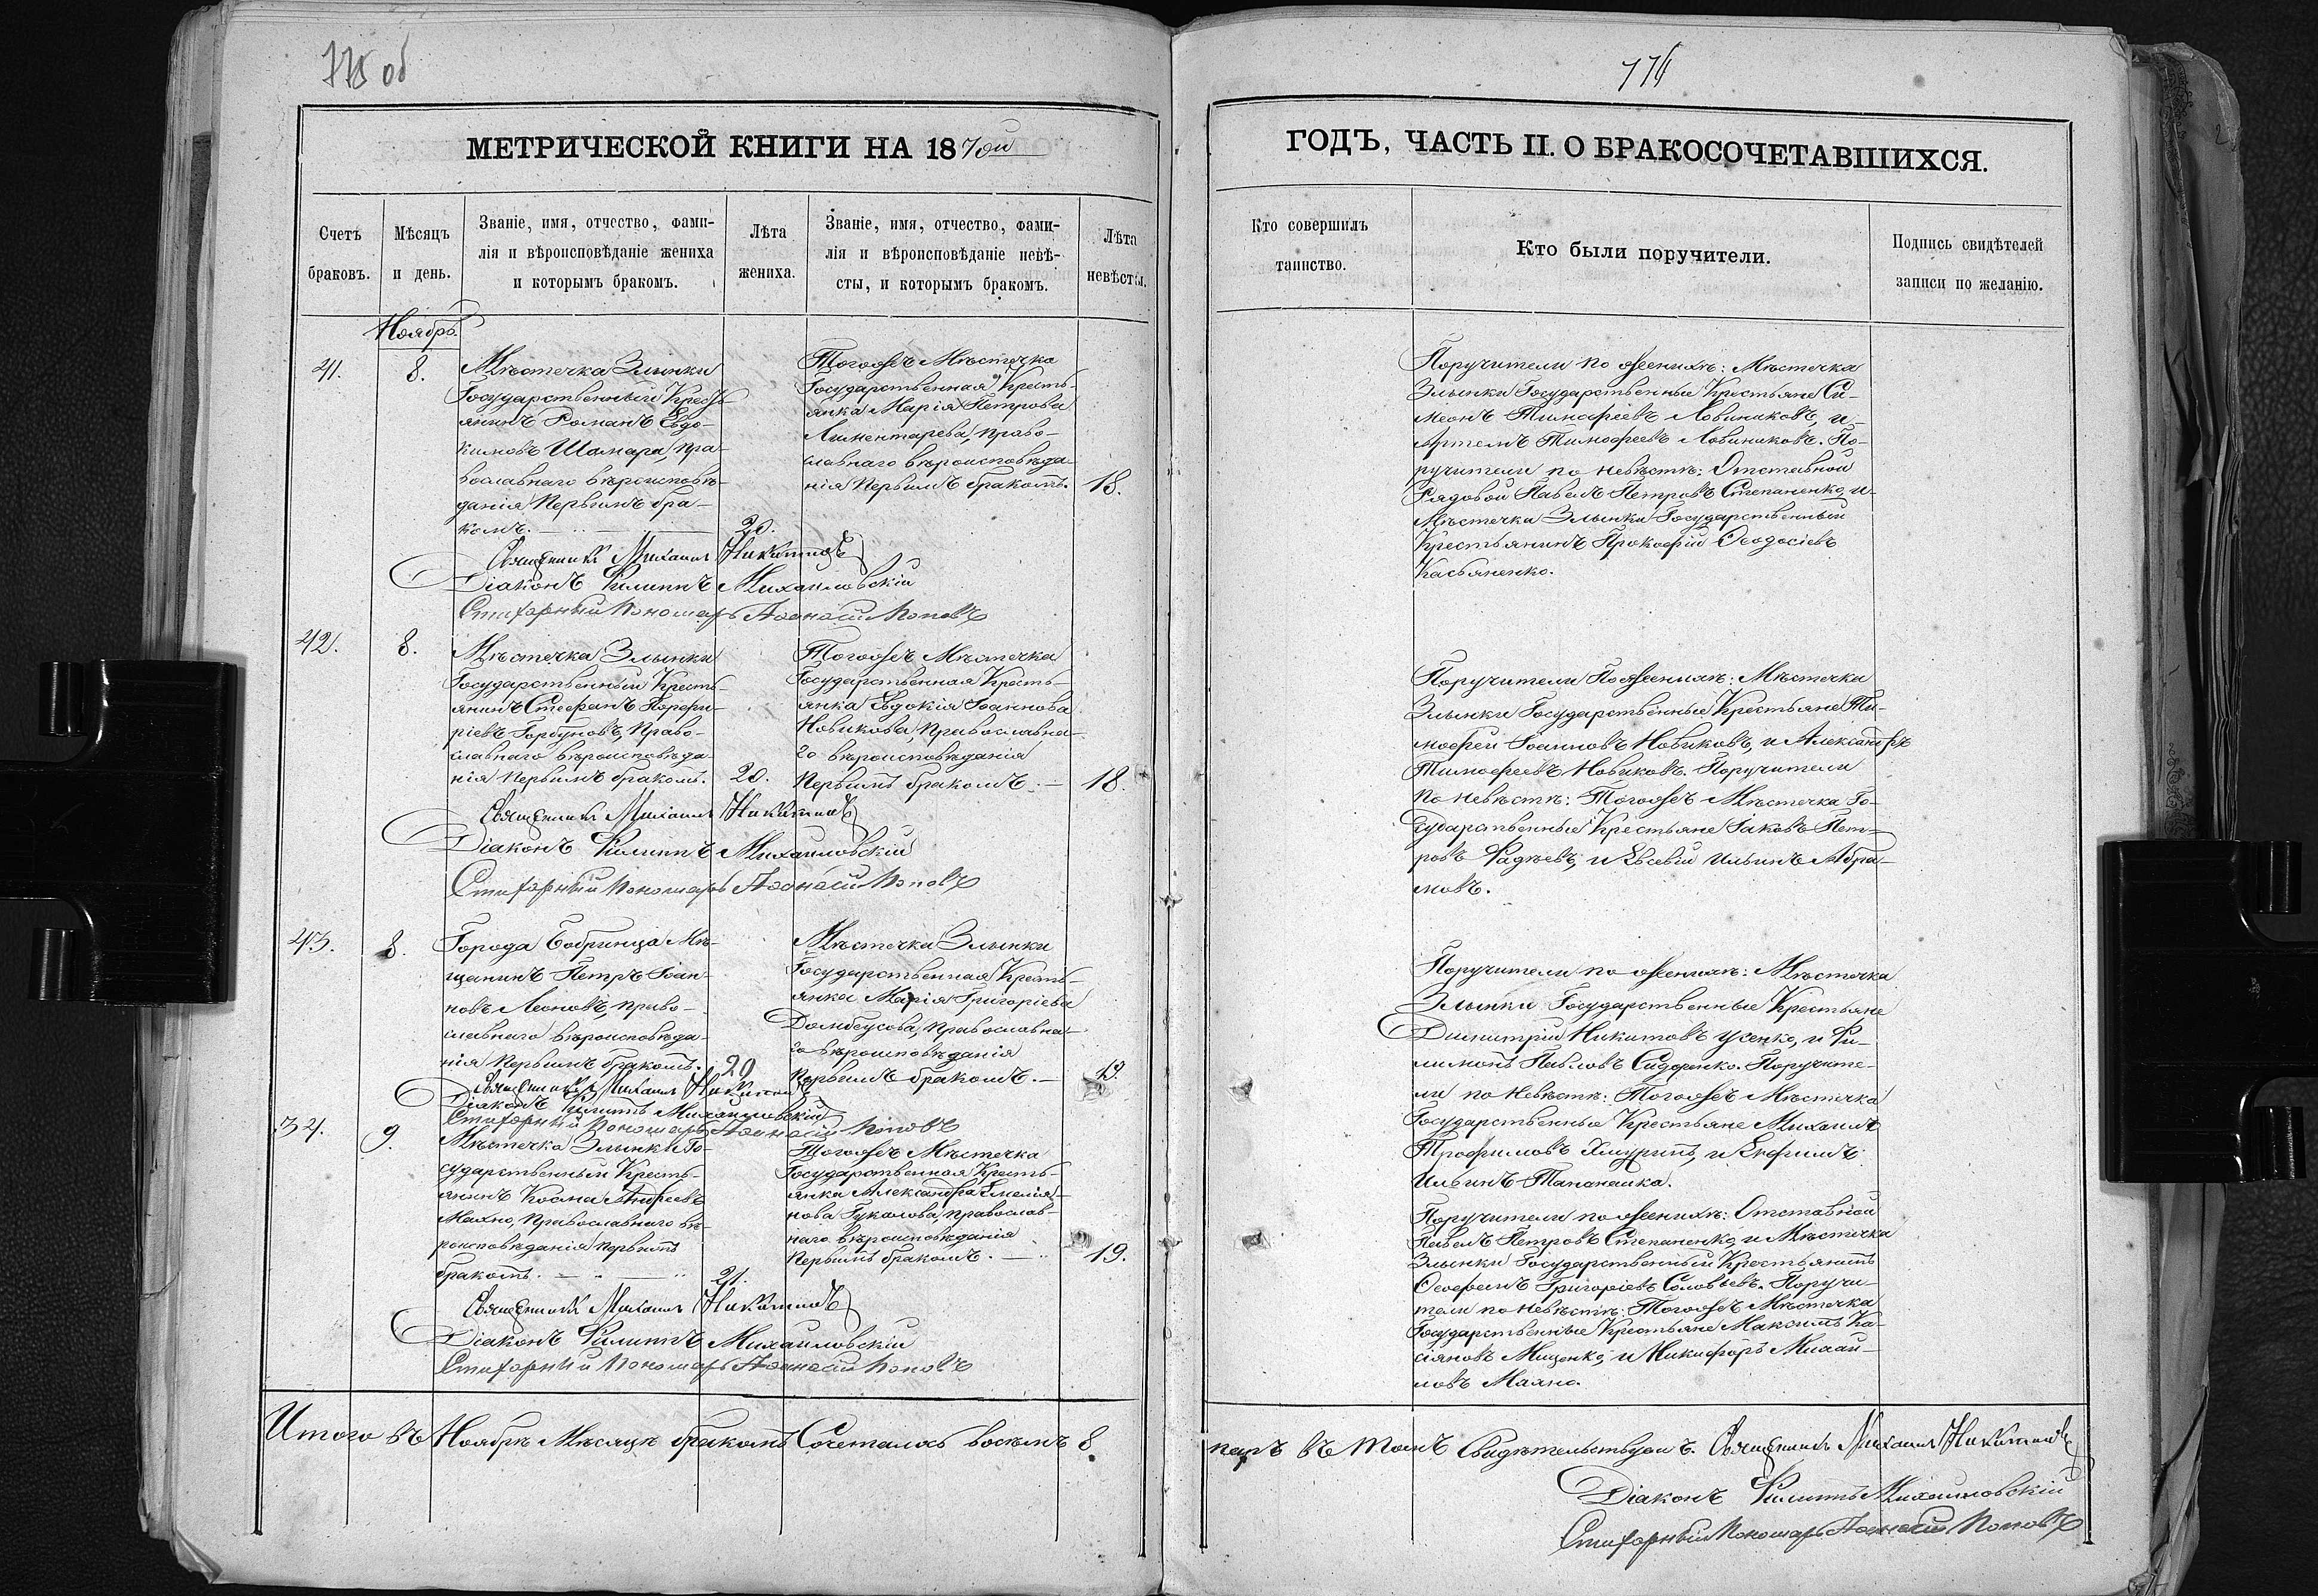 775 об
МЕТРИЧЕСКОЙ КНИГИ НА 1870ый
Счетъ браковъ.
Мѣсяцъ и день.
Званіе, имя, отчество, фами-
лія и вѣроисповѣданіе жениха
и которымъ бракомъ.
Лѣта жениха.
Званіе, имя, отчество, фами-
лія и вѣроисповѣданіе невѣ-
сты, и которымъ бракомъ.
Лѣта невѣсты.
Ноябрь
41.
8.
Мѣстечка Злынки
Государственный Кресть-
янинъ Романъ Евдо-
кимовъ Шамара, пра-
вославнаго вѣроисповѣ-
данія первымъ бра-
комъ.
20.
Тогожъ Мѣстечка
Государственная Кресть-
янка Марія Петрова
Лиментарева, право-
славнаго вѣроисповѣда-
нія первымъ бракомъ.
18.
Священникъ Михаилъ Никитинъ
Діаконъ Филиппъ Михаиловскій
Стихарный Пономарь Аѳанасій Поповъ
42.
8.
Мѣстечка Злынки
Государственный Кресть-
янинъ Стефанъ Порфи-
ріевъ Горбуновъ, Право-
славнаго вѣроисповѣда-
нія первымъ бракомъ.
20.
Тогожъ Мѣстечка
Государственная Кресть-
янка Евдокія Іоаннова
Новикова, Православна-
го вѣроисповѣданія
Первымъ бракомъ.
18.
Священникъ Михаилъ Никитинъ
Діаконъ Филиппъ Михаиловскій
Стихарный Пономарь Аѳанасій Поповъ
43.
8.
Города Бобринца Мѣ-
щанинъ Петръ Іоан-
новъ Леоновъ, право-
славнаго вѣроисповѣда-
нія первымъ бракомъ.
20
Мѣстечка Злынки
Государственная Кресть-
янка Марія Григоріева
Домбоусова, православна-
го вѣроисповѣданія
Первымъ бракомъ.
19.
Священникъ Михаилъ Никитинъ
Діаконъ Филиппъ Михаиловскій
Стихарный Пономарь Аѳанасій Поповъ
34.
9.
Мѣстечка Злынки Го-
сударственный Кресть-
янинъ Косма Андреевъ
Махно, Православнаго вѣ-
роисповѣданія первымъ
бракомъ.
21.
Тогожъ Мѣстечка
Государственная Кресть-
янка Александра Емелія-
нова Гукалова, православ-
наго вѣроисповѣданія
Первымъ бракомъ.
19.
Священникъ Михаилъ Никитинъ
Діаконъ Филиппъ Михаиловскій
Стихарный Пономарь Аѳанасій Поповъ
Итого въ Ноябрѣ Мѣсяцѣ бракомъ Сочеталось восемь 8.
776
ГОДЪ, ЧАСТЬ II. О БРАКОСОЧЕТАВШИХСЯ.
Кто совершилъ таинство.
Кто были поручители.
Подпись свидѣтелей записи по желанію.
Поручители по женихѣ: Мѣстечка
Злынки Государственные Крестьяне Си-
меонъ Тимофеевъ Ловиниковъ, и
Артемъ Тимофеевъ Ловиниковъ. По-
ручители по невѣстѣ: Отставной
Рядовой Павелъ Петровъ Степаненко, и
Мѣстечка Злынки Государственный
Крестьянинъ Прокофій Ѳеодосіевъ
Касьяненко.
Поручители По женихѣ: Мѣстечка
Злынки Государственные Крестьяне Ти-
мофей Іоанновъ Новиковъ, и Александръ
Тимофеевъ Новиковъ. Поручители
По невѣстѣ: Тогожъ Мѣстечка Го-
сударственные Крестьяне Іаковъ Пет-
ровъ Фадѣевъ, и Евсевій Ильинъ Абра-
мовъ.
Поручители по женихѣ: Мѣстечка
Злынки Государственные Крестьяне
Димитрій Никитовъ Усенко, и Фи-
лимонъ Павловъ Сидоренко. Поручите-
ли по Невѣстѣ: Тогожъ Мѣстечка
Государственные Крестьяне Михаилъ
Трофимовъ Хмуринъ, и Ефимъ
Ильинъ Тапанашка.
Поручители по женихѣ: Отставной
Павелъ Петровъ Степаненко, и Мѣстечка
Злынки Государственный Крестьянинъ
Ѳеофанъ Григоріевъ Соловьевъ. Поручи-
тели по Невѣстѣ: Тогожъ Мѣстечка
Государственные Крестьяне Максимъ Ка-
сіяновъ Мищенко, и Никифоръ Михаи-
ловъ Махно.
паръ въ томъ Свидѣтельствуемъ. Священникъ Михаилъ Никитинъ
Діаконъ Филиппъ Михаиловскій
Стихарный Пономарь Аѳанасій Поповъ